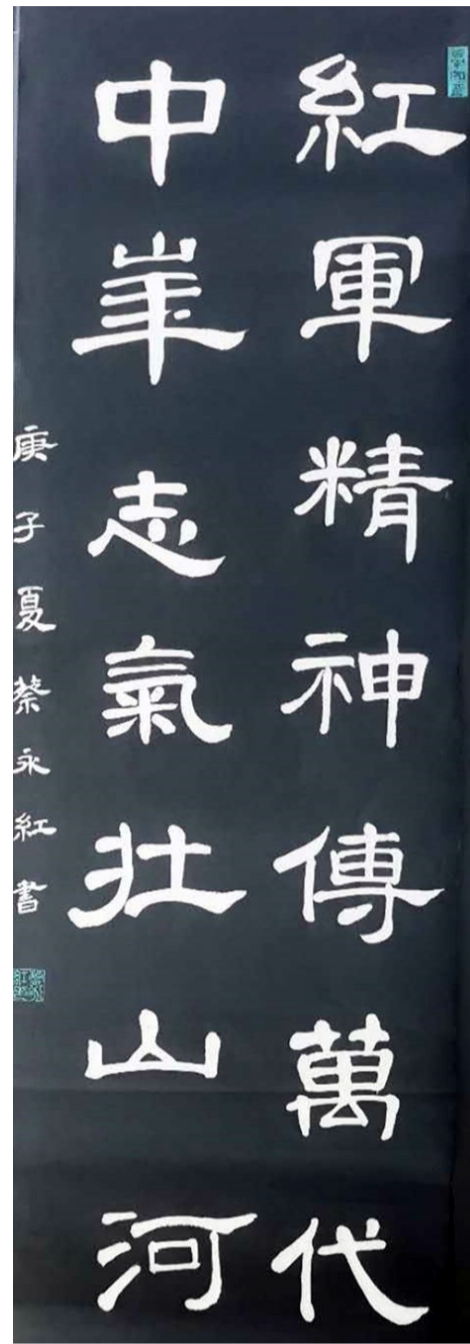 紅軍精神傳萬代
中崋志氣壯山河
庚子夏蔡永紅書